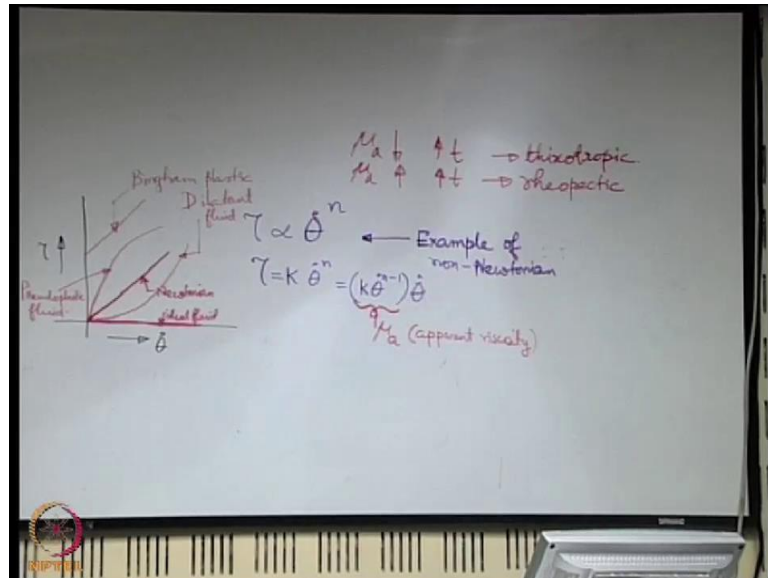 μa ↓ ↑ t → thixotropic
μa ↑ ↑ t → rheopectic
Bingham plastic
Dilatant
fluid
τ ↑
Pseudoplastic
fluid.
Newtonian
ideal fluid
→ θ̇
τ ∝ θ̇ⁿ ← Example of
non-Newtonian
τ = K θ̇ⁿ = (kθ̇ⁿ⁻¹) θ̇
μa (apparent viscosity)
NPTEL